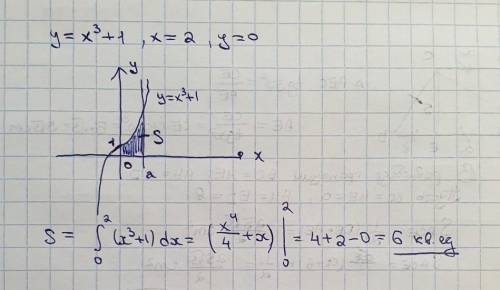 y = x³+1 , x = 2 , y = 0
y
y = x³+1
1
S
0
2
x
S = ∫₀² (x³+1) dx = (x⁴/4 + x) |₀² = 4+2-0 = 6 кв.ед